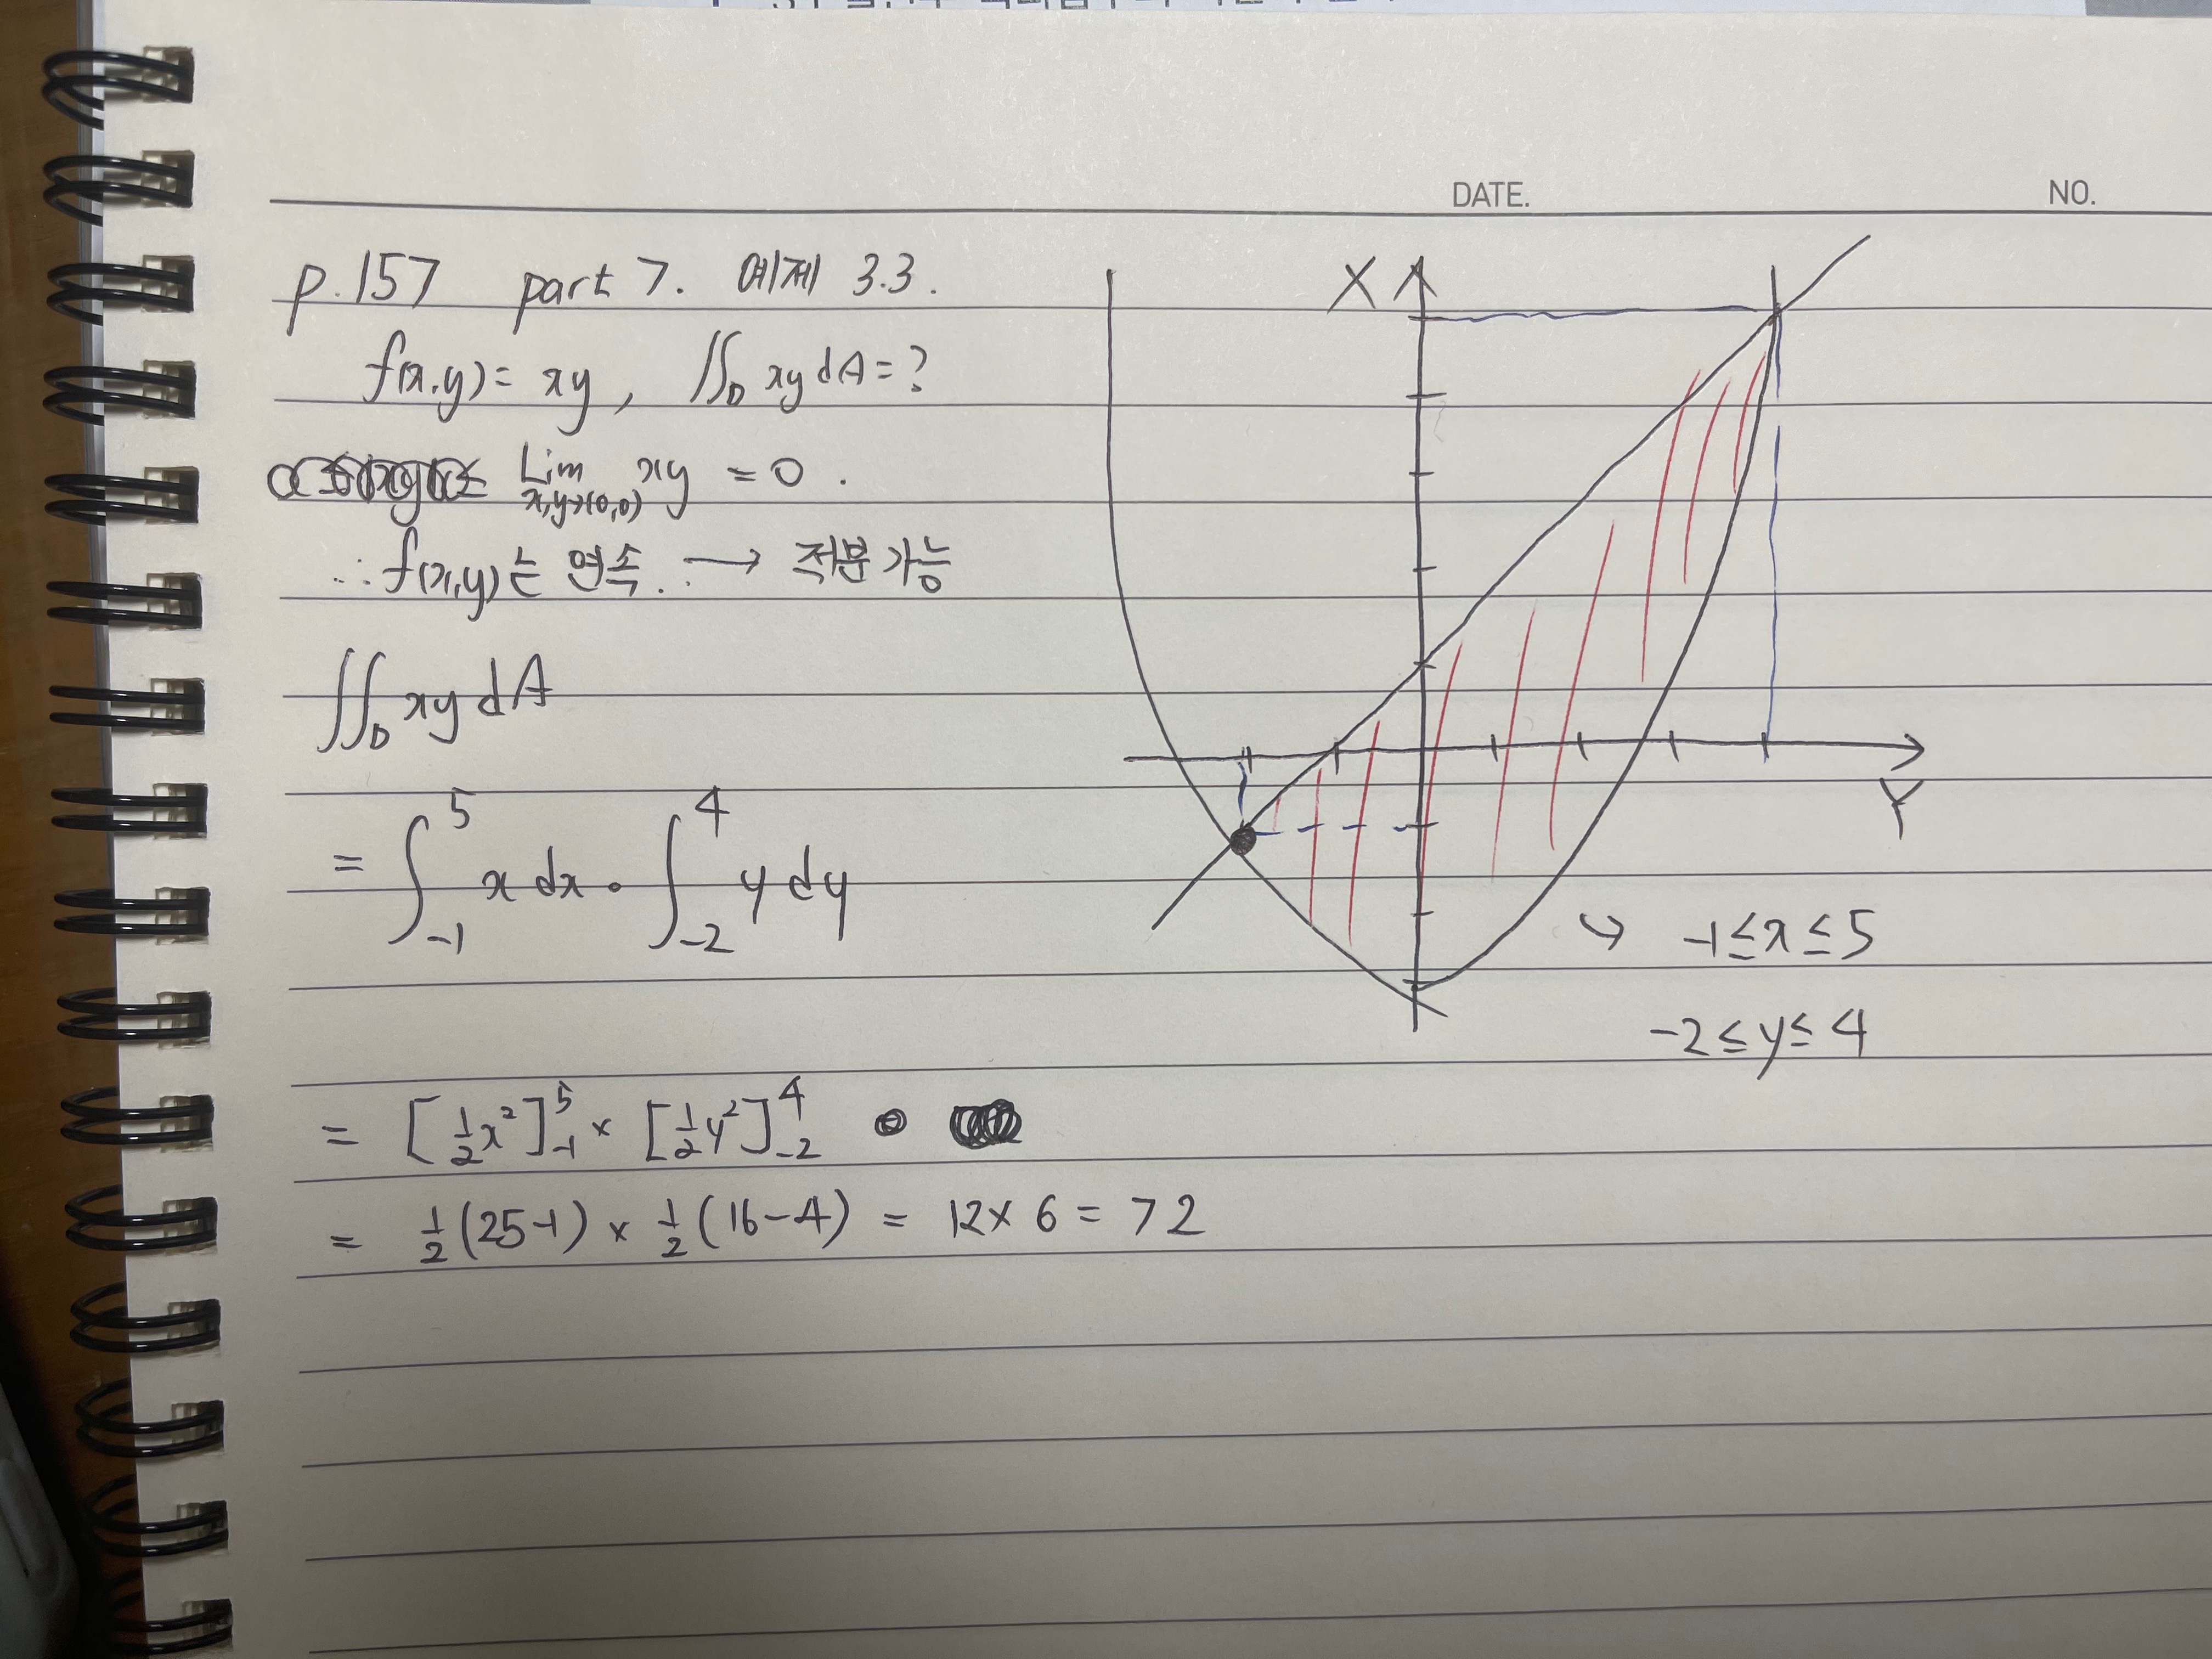 DATE. NO.
p.157 part 7. 예제 3.3.
f(x,y) = xy, ∬_D xy dA = ?
Lim_{x,y→(0,0)} xy = 0.
∴ f(x,y)는 연속. → 적분 가능
∬_D xy dA
= ∫_{-1}^{5} x dx · ∫_{-2}^{4} y dy
= [½x²]_{-1}^{5} × [½y²]_{-2}^{4}
= ½(25-1) × ½(16-4) = 12 × 6 = 72
X
Y
↪ -1≤x≤5
-2≤y≤4